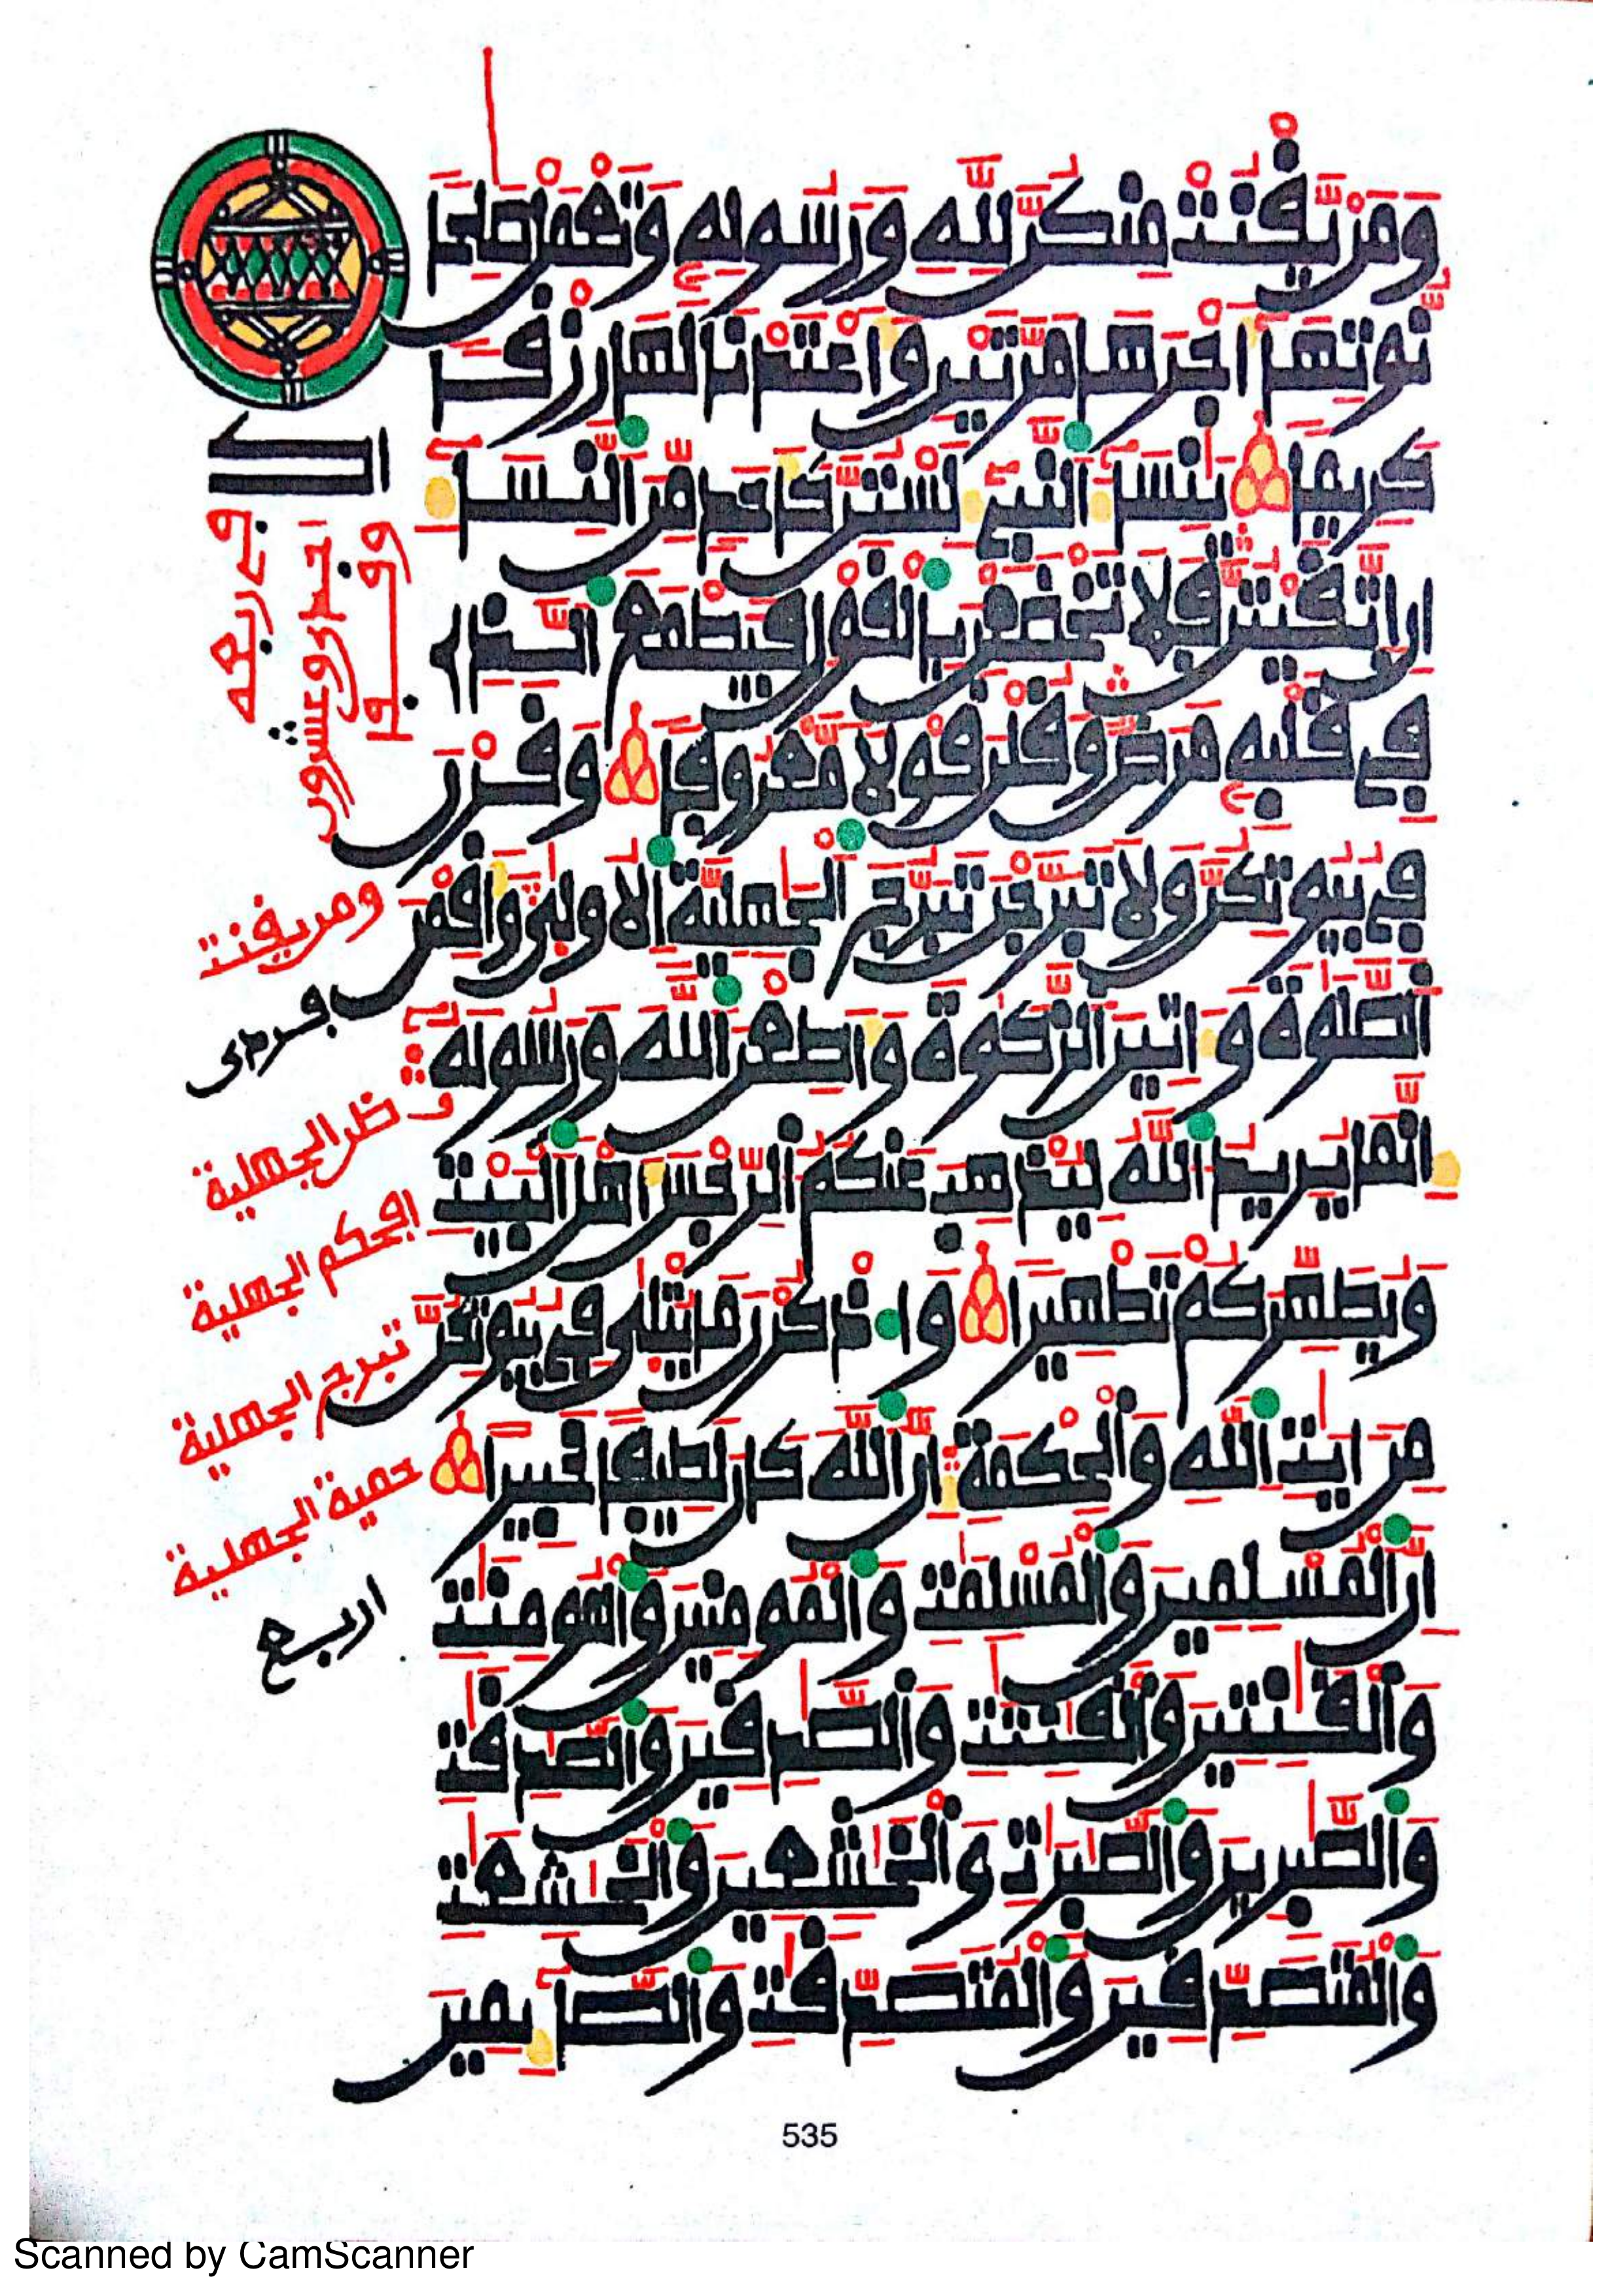 وَمَنْ يَّقْنُتْ مِنكُنَّ لِلهِ وَرَسُولِهِ وَتَعْمَلْ صَٰلِحا
نُّوتِهَا أَجْرَهَا مَرَّتَيْنِ وَأَعْتَدْنَا لَهَا رِزْقا
كَرِيما يَٰنِسَاءَ النَّبِيءِ لَسْتُنَّ كَأَحَدٍ مِّنَ النِّسَاءِ
اِنِ اتَّقَيْتُنَّ فَلَا تَخْضَعْنَ بِالْقَوْلِ فَيَطْمَعَ الَّذِے
فِے قَلْبِهِ مَرَضٌ وَقُلْنَ قَوْلا مَّعْرُوفا وَقَرْنَ
فِے بُيُوتِكُنَّ وَلَا تَبَرَّجْنَ تَبَرُّجَ الْجَٰهِلِيَّةِ الُاولَىٰ وَأَقِمْنَ
اَلصَّلَوٰةَ وَءَاتِينَ الزَّكَوٰةَ وَأَطِعْنَ اللَّهَ وَرَسُولَهُ
إِنَّمَا يُرِيدُ اللَّهُ لِيُذْهِبَ عَنكُمُ الرِّجْسَ أَهْلَ الْبَيْتِ
وَيُطَهِّرَكُمْ تَطْهِيرا وَاذْكُرْنَ مَا يُتْلَىٰ فِے بُيُوتِكُنَّ
مِنَ ايَٰتِ اللَّهِ وَالْحِكْمَةِ إِنَّ اللَّهَ كَانَ لَطِيفا خَبِيرا
اِنَّ الْمُسْلِمِينَ وَالْمُسْلِمَٰتِ وَالْمُومِنِينَ وَالْمُومِنَٰتِ
وَالْقَٰنِتِينَ وَالْقَٰنِتَٰتِ وَالصَّٰدِقِينَ وَالصَّٰدِقَٰتِ
وَالصَّٰبِرِينَ وَالصَّٰبِرَٰتِ وَالْخَٰشِعِينَ وَالْخَٰشِعَٰتِ
وَالْمُتَصَدِّقِينَ وَالْمُتَصَدِّقَٰتِ وَالصَّٰئِمِينَ
ومن يقنت
ظن الجهلية
افحكم الجهلية
تبرج الجهلية
حمية الجهلية
اربع
535
Scanned by CamScanner